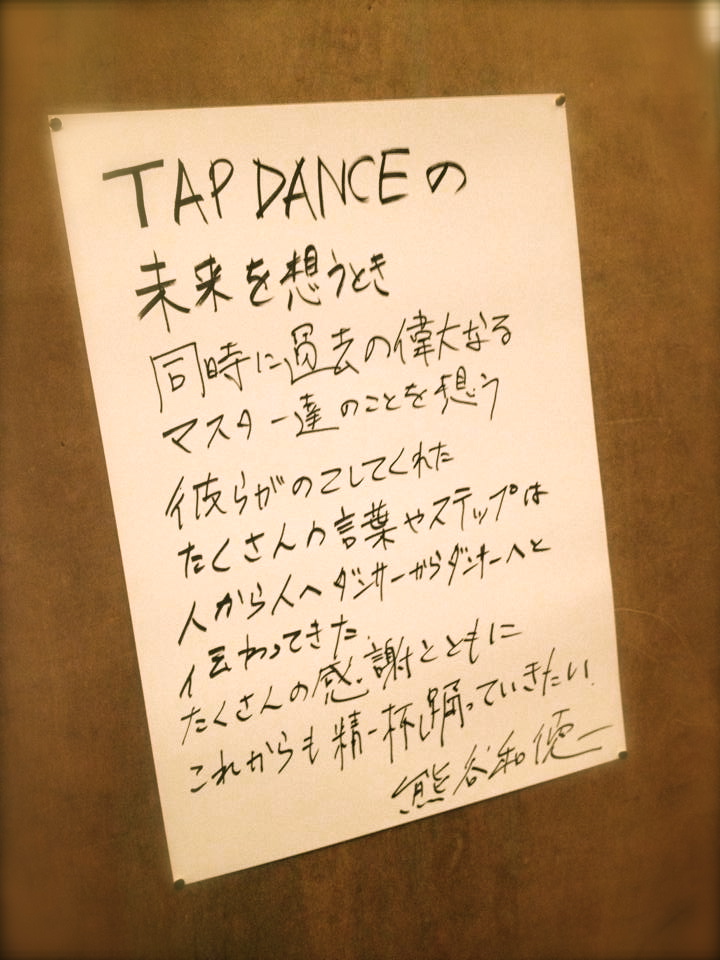 TAP DANCEの
未来を想うとき
同時に過去の偉大なる
マスター達のことを想う
彼らがのこしてくれた
たくさんの言葉やステップは
人から人へダンサーからダンサーへと
伝わってきた.
たくさんの感謝とともに
これからも精一杯踊っていきたい.
熊谷和徳